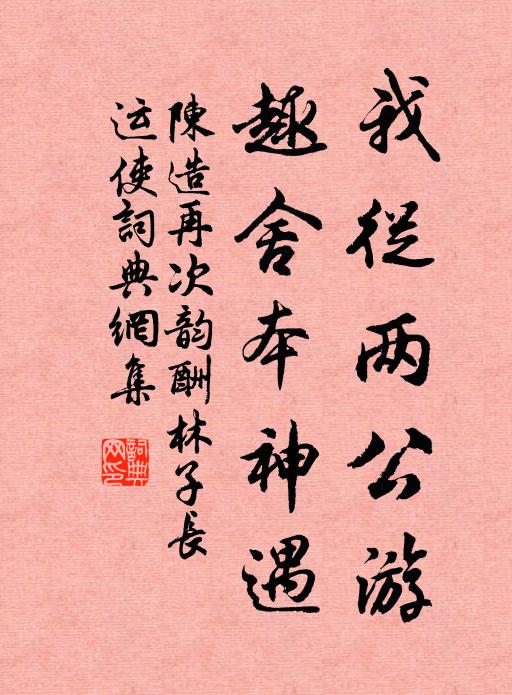 我從两公游
趣舍本神遇
陳造再次韵酬林子長
运使詞典網集
詞典网印